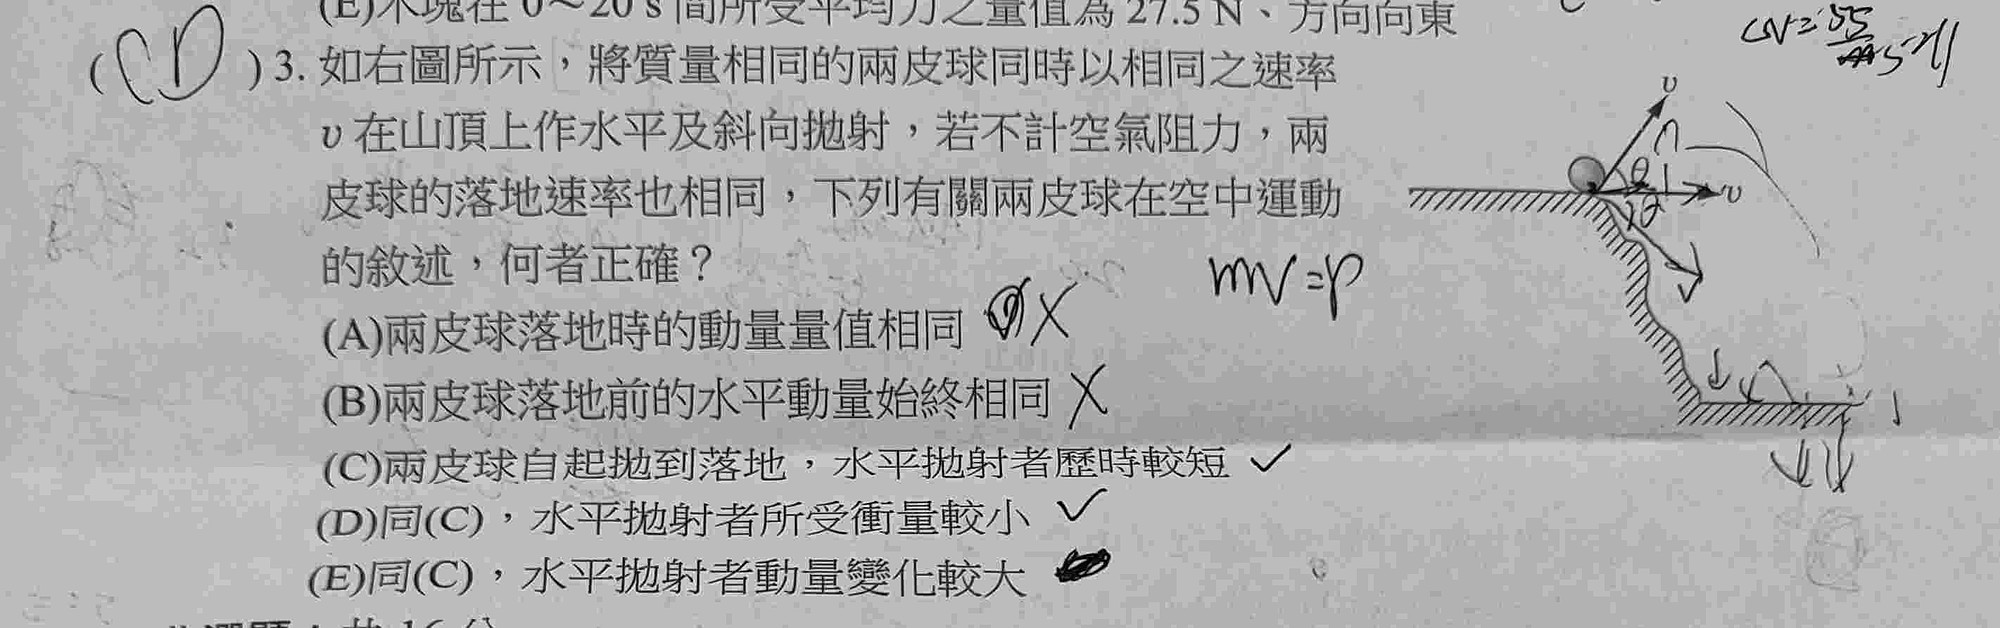 (E)木塊在 0～20 s 間所受平均力之量值為 27.5 N、方向向東
(CD)3. 如右圖所示，將質量相同的兩皮球同時以相同之速率
υ 在山頂上作水平及斜向拋射，若不計空氣阻力，兩
皮球的落地速率也相同，下列有關兩皮球在空中運動
的敘述，何者正確？
mv=p
(A)兩皮球落地時的動量量值相同 X
(B)兩皮球落地前的水平動量始終相同 X
(C)兩皮球自起拋到落地，水平拋射者歷時較短 ✓
(D)同(C)，水平拋射者所受衝量較小 ✓
(E)同(C)，水平拋射者動量變化較大
υ
θ
υ